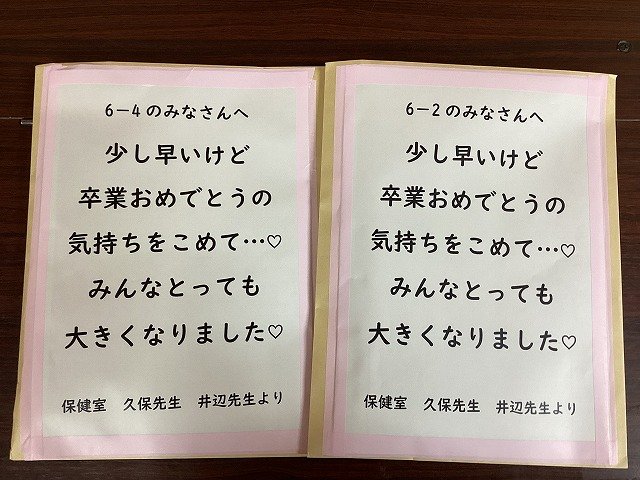 6−4のみなさんへ
少し早いけど
卒業おめでとうの
気持ちをこめて…♡
みんなとっても
大きくなりました♡
保健室　久保先生　井辺先生より
6−2のみなさんへ
少し早いけど
卒業おめでとうの
気持ちをこめて…♡
みんなとっても
大きくなりました♡
保健室　久保先生　井辺先生より